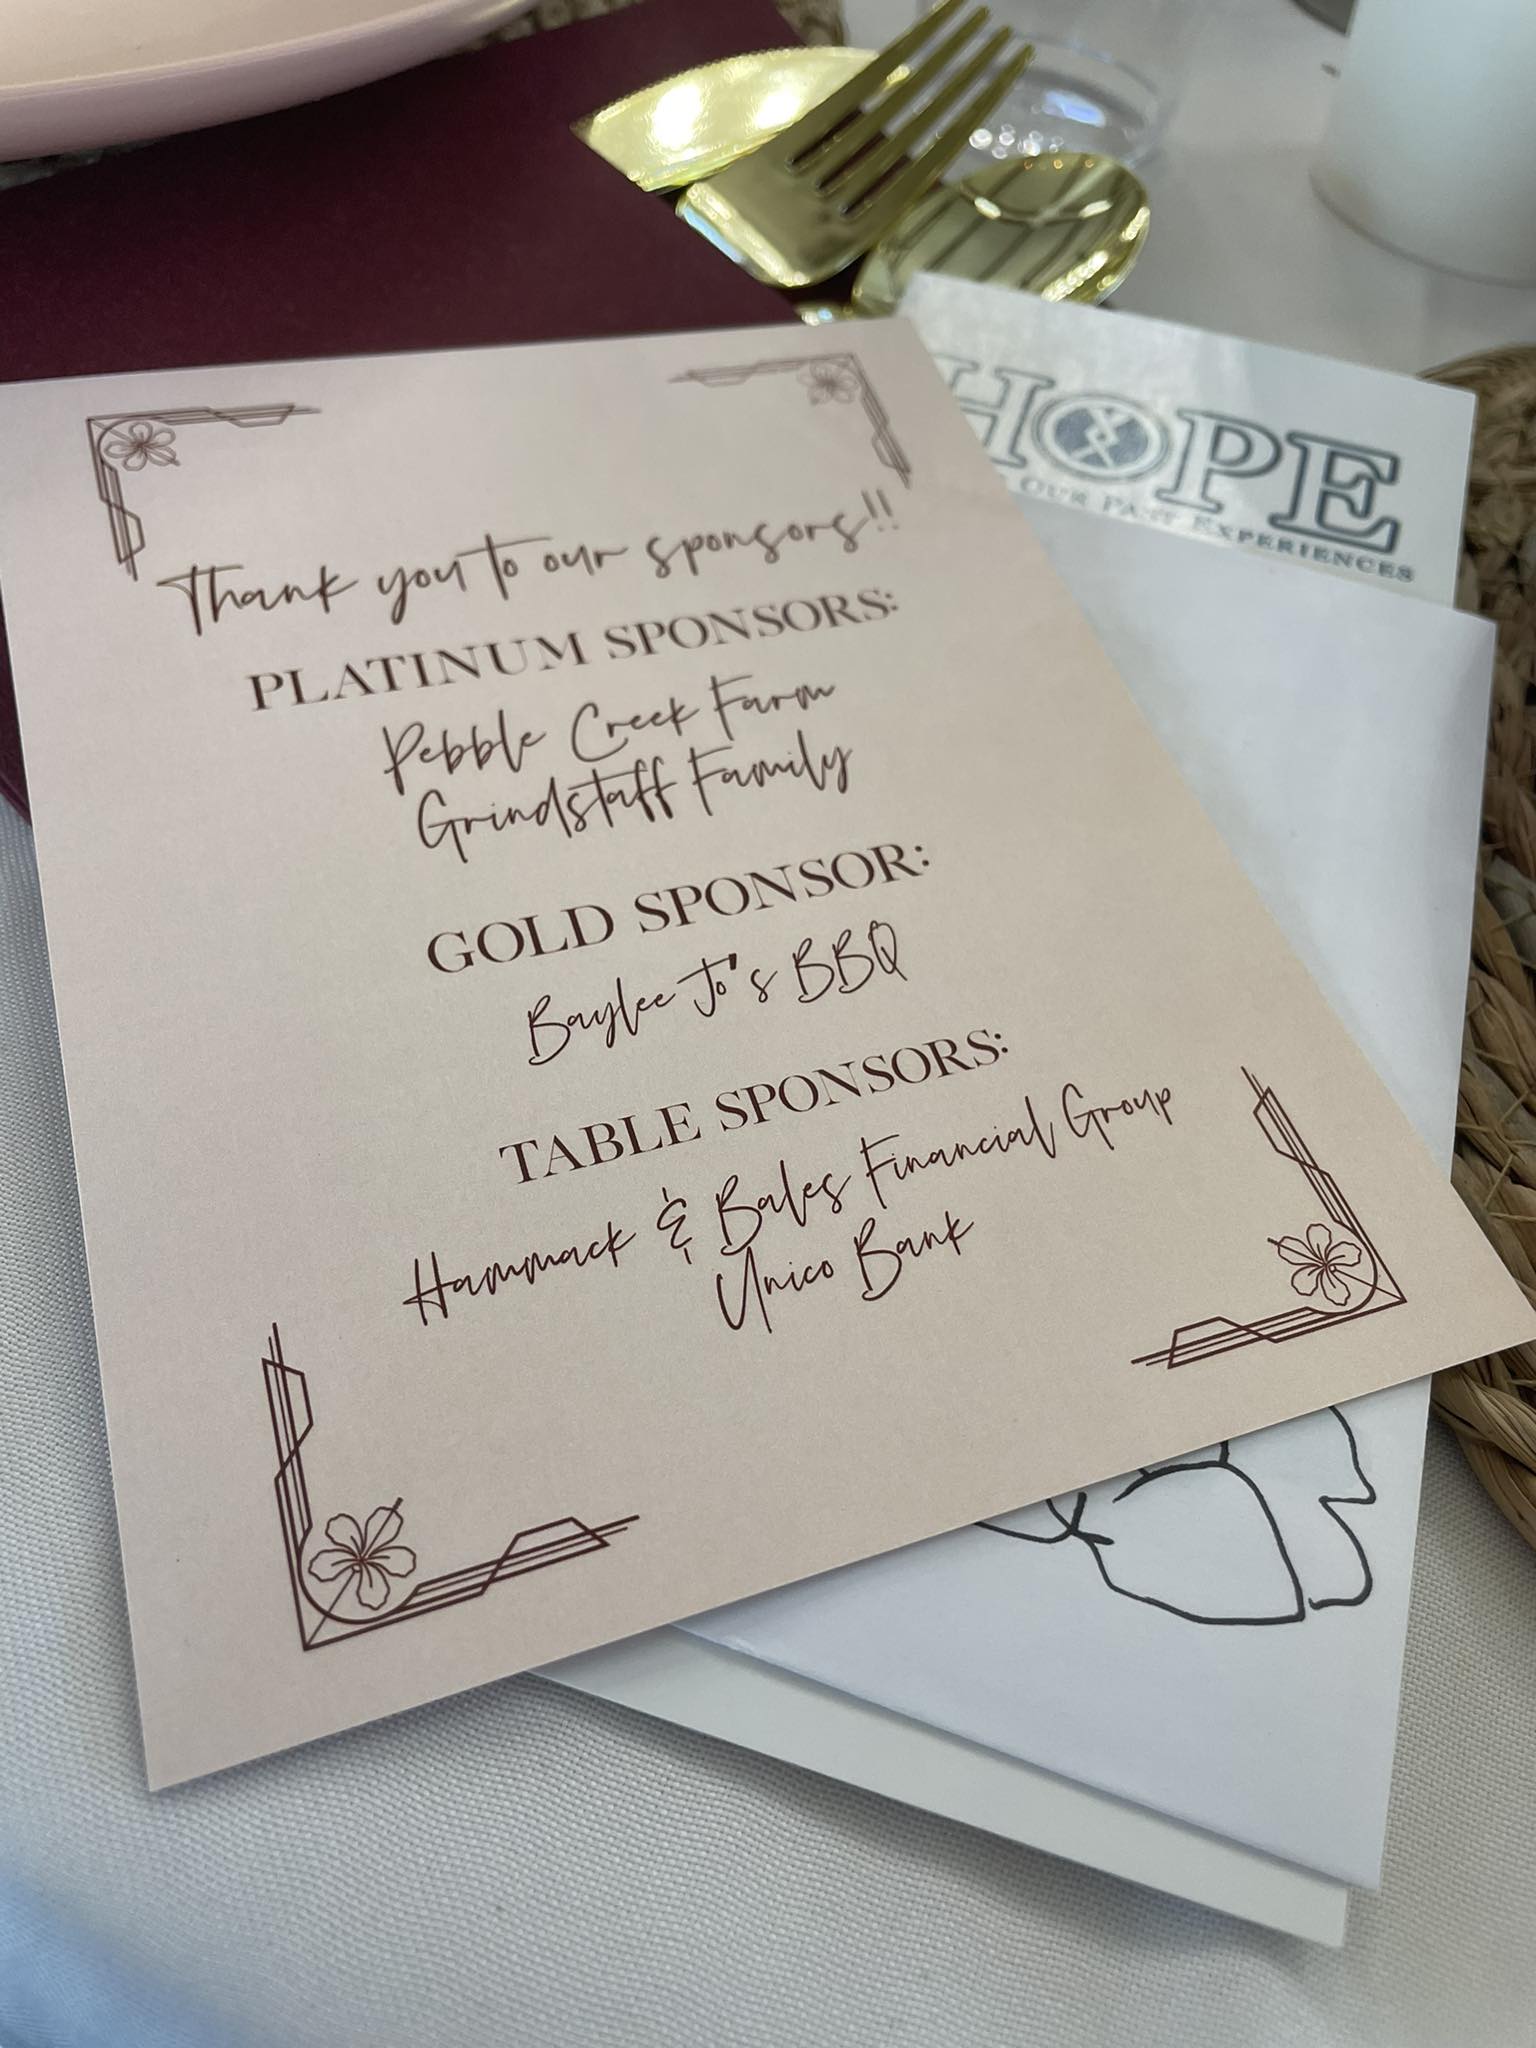 Thank you to our sponsors!!
PLATINUM SPONSORS:
Pebble Creek Farm
Grindstaff Family
GOLD SPONSOR:
Baylee Jo's BBQ
TABLE SPONSORS:
Hammack & Bales Financial Group
Unico Bank
HOPE
OUR PAST EXPERIENCES